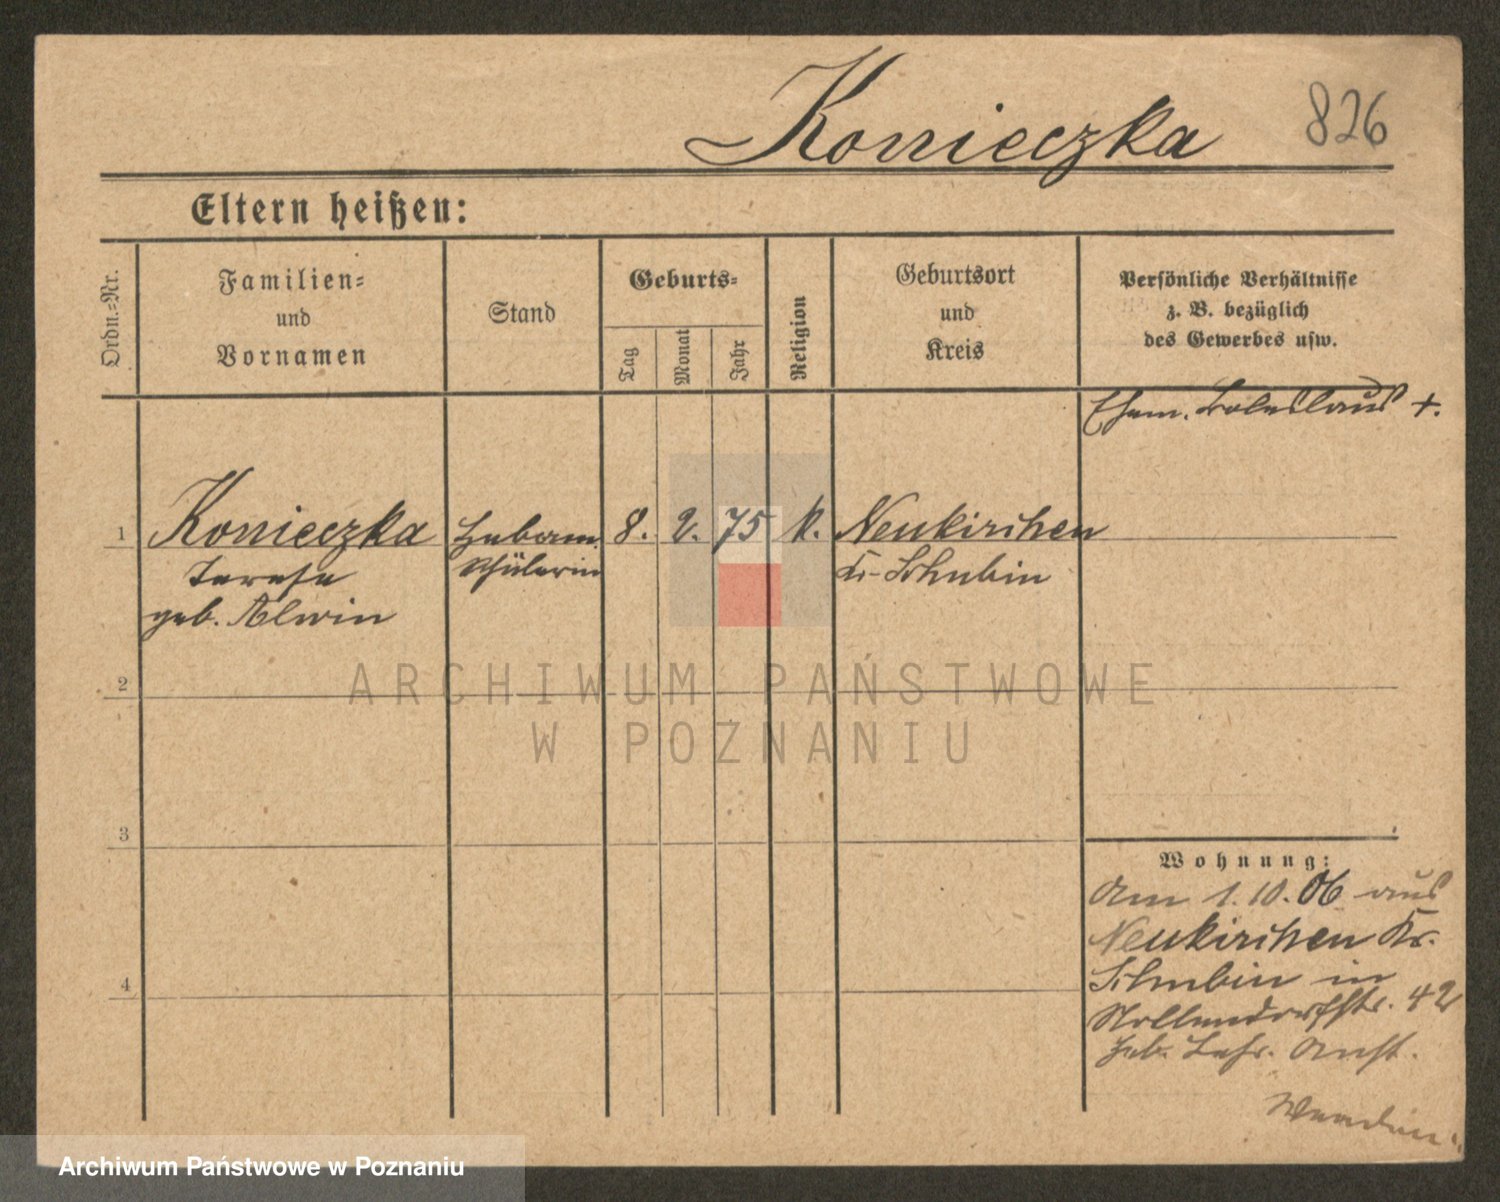 Konieczka
826
Eltern heißen:
Ordn.-Nr.
Familien-
und
Vornamen
Stand
Geburts-
Tag
Monat
Jahr
Religion
Geburtsort
und
Kreis
Persönliche Verhältnisse
z. B. bezüglich
des Gewerbes usw.
Ehem. Boleslaus +.
1
Konieczka
Terese
geb. Alwin
Hebam.
schülerin
8. 2. 75 k.
Neukirchen
Kr. Schubin
2
3
4
Wohnung:
Am 1.10.06 aus
Neukirchen Kr.
Schubin in
Nollendorfstr. 42
Heb. Lehr. Anst.
ARCHIWUM PAŃSTWOWE
W POZNANIU
Archiwum Państwowe w Poznaniu